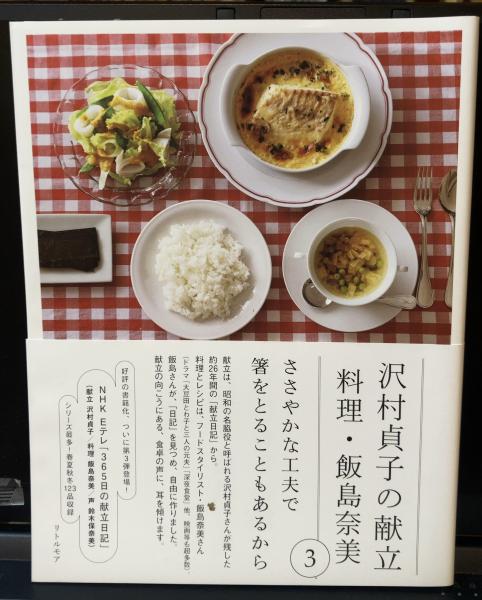 沢村貞子の献立
料理・飯島奈美
3
ささやかな工夫で
箸をとることもあるから
献立は、昭和の名脇役と呼ばれる沢村貞子さんが残した
約26年間の「献立日記」から。
料理とレシピは、フードスタイリスト・飯島奈美さん
(ドラマ「大豆田とわ子と三人の元夫」「深夜食堂」他、映画等も超多数)。
飯島さんが、「日記」を見つめ、自由に作りました。
献立の向こうにある、食卓の声に、耳を傾けます。
好評の書籍化、ついに第3弾登場!
NHK Eテレ「365日の献立日記」
(献立 沢村貞子/料理 飯島奈美 声 鈴木保奈美)
シリーズ最多!春夏秋冬123品収録
リトルモア